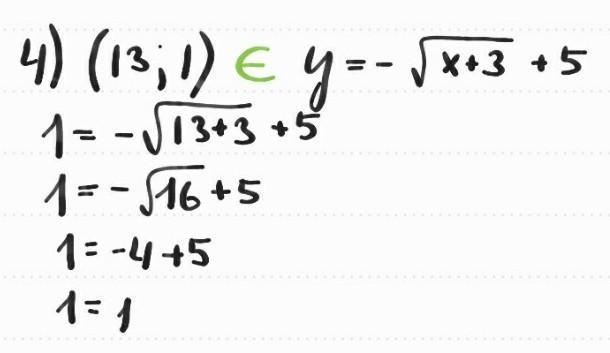 4) (13; 1) ∈ y = - √(x+3) + 5
1 = - √(13+3) + 5
1 = - √16 + 5
1 = -4 + 5
1 = 1